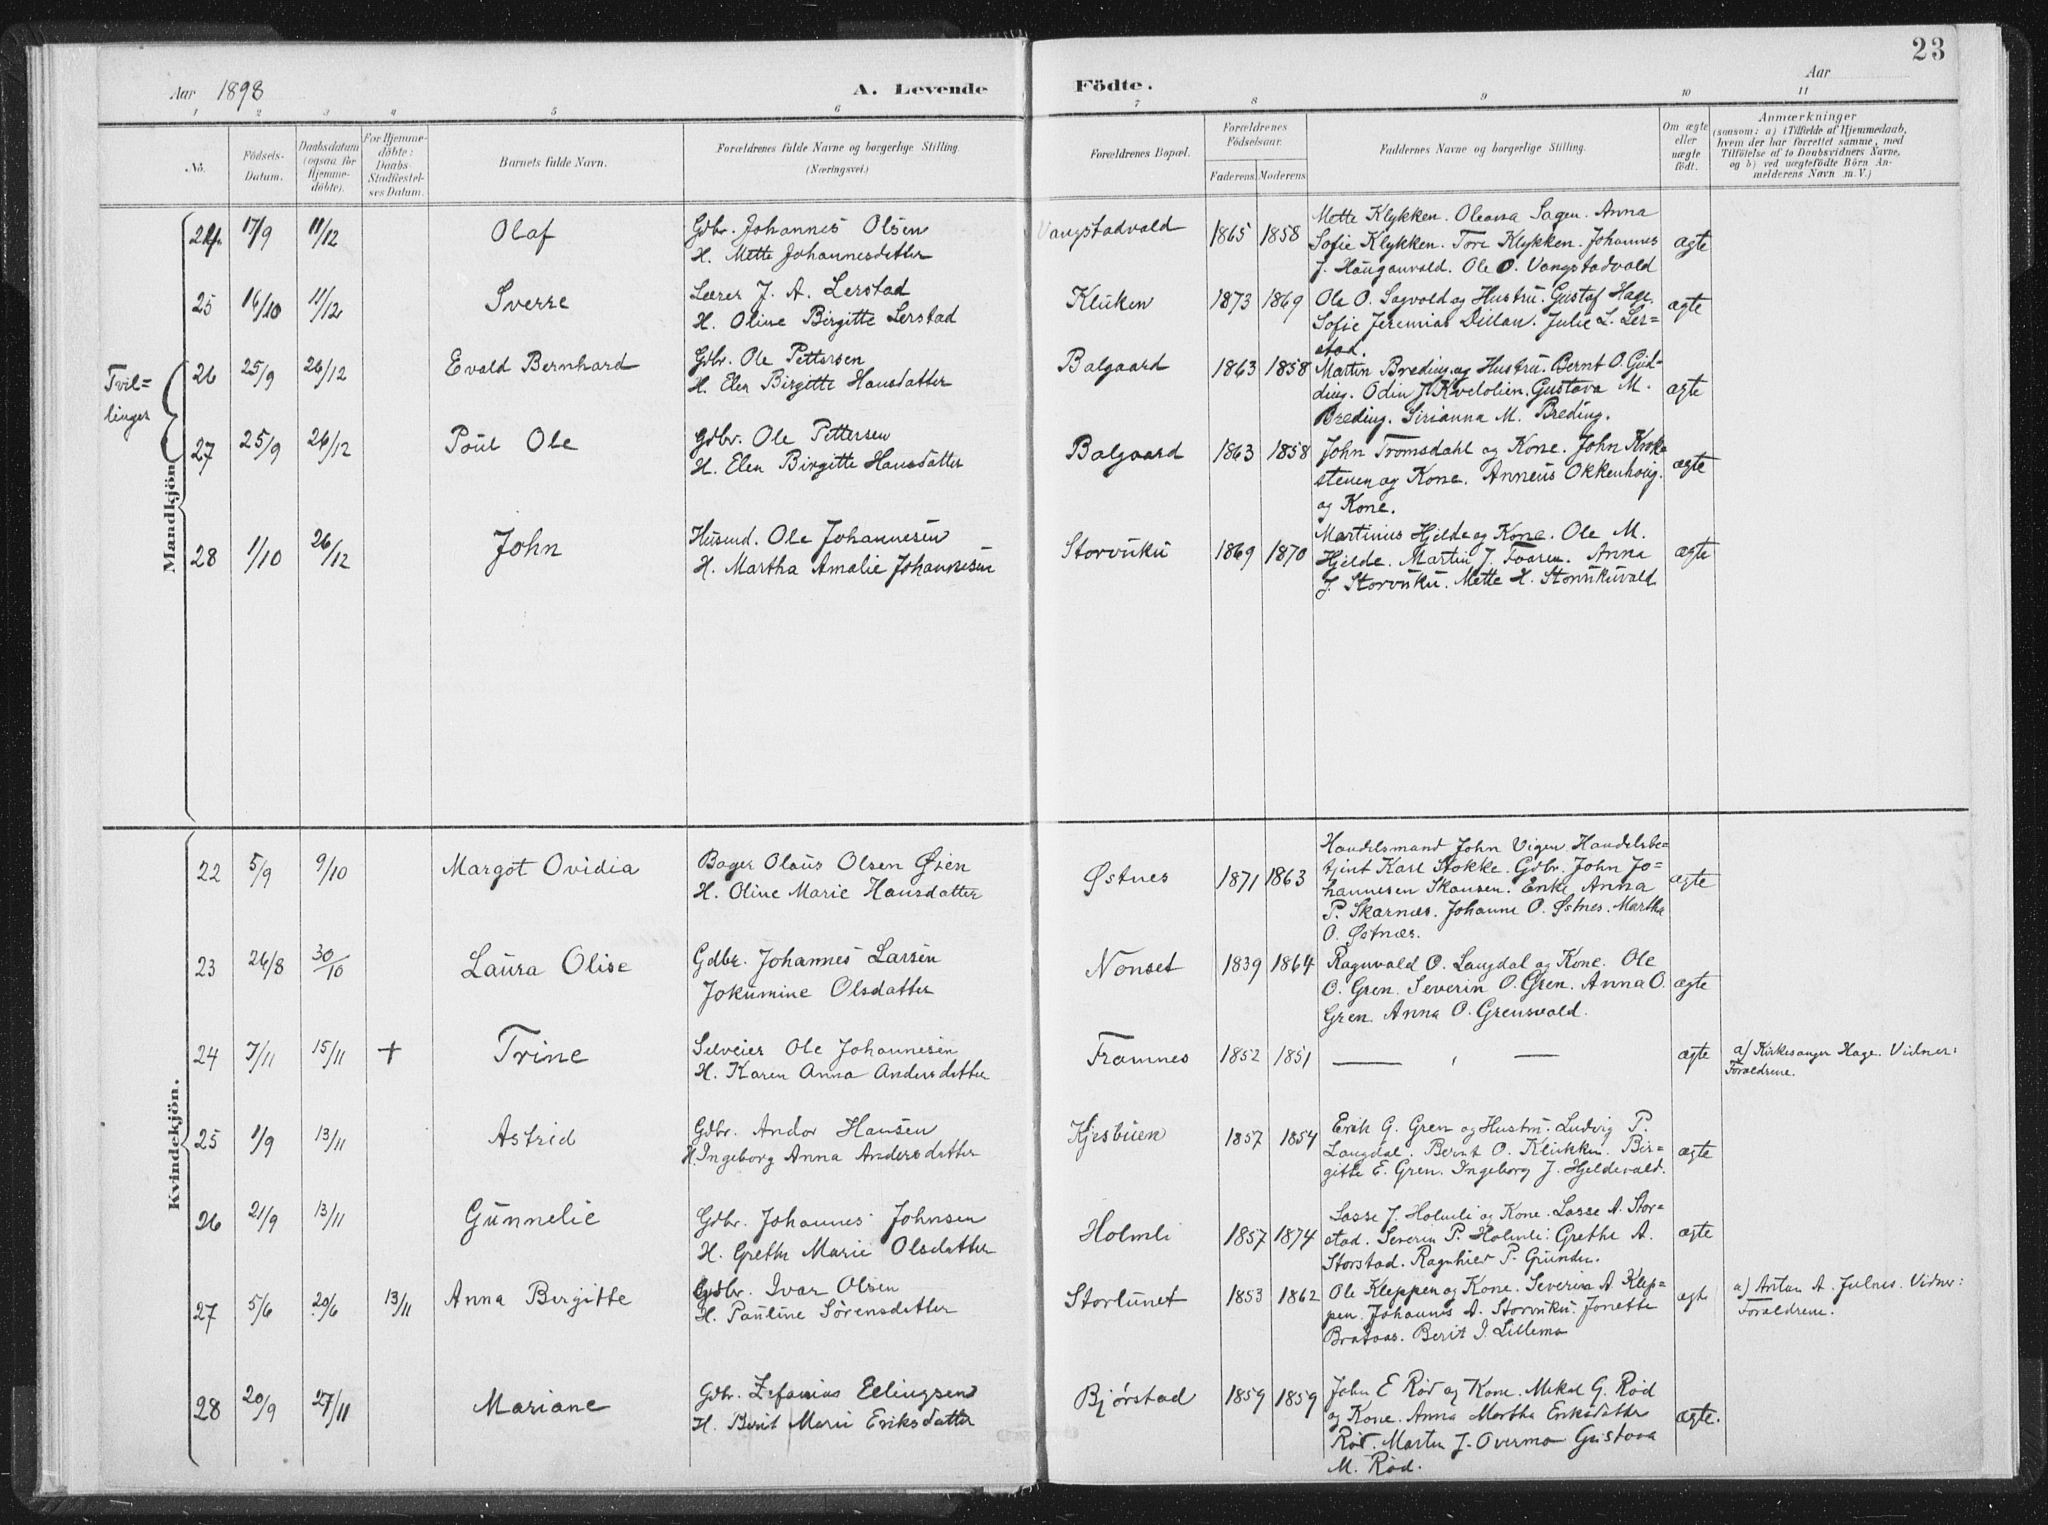 23
Aar 1898
A. Levende Födte.
Aar
1 2 3 4 5 6 7 8 9 10 11
No.
Födsels-Datum.
Daabsdatum (ogsaa för Hjemmedöbte).
For Hjemmedöbte: Daabs-Stadfæstelses Datum.
Barnets fulde Navn.
Forældrenes fulde Navne og borgerlige Stilling. (Næringsvei.)
Forældrenes Bopæl.
Forældrenes Födselsaar.
Faderens. Moderens.
Faddernes Navne og borgerlige Stilling.
Om ægte eller uægte födt.
Anmærkninger
(saasom: a) i Tilfælde af Hjemmedaab,
hvem der har forrettet samme, med
Tilföielse af to Daabsvidners Navne,
og b) ved uægtefödte Börn An-
melderens Navn m. V.)
Mandkjön.
24. 17/9 11/12 Olaf
Gdbr. Johannes Olsen
H. Mette Johannesdatter
Vangstadvald 1865 1858
Mette Klykken. Oleana Sagen. Anna
Sofie Klykken. Tore Klykken. Johannes
J. Hauganvald. Ole O. Vangstadvald
ægte
25 16/10 11/12 Sverre
Lærer J. A. Lerstad
H. Oline Birgitte Lerstad
Kluken 1873 1869
Ole O. Sagvold og Hustru. Gustaf Hage.
Sofie Jeremias Dillan. Julie L. Ler=
stad.
ægte
Tvil=
linger
26 25/9 26/12 Evald Bernhard
Gdbr. Ole Pettersen
H. Elen Birgitte Hansdatter
Balgaard 1863 1858
Martin Breding og Hustru. Bernt O. Gud-
ding. Odin J. Kvelolien. Gustava M.
Breding. Sirianna M. Breding.
ægte
27 25/9 26/12 Poul Ole
Gdbr. Ole Pettersen
H. Elen Birgitte Hansdatter
Balgaard 1863 1858
John Tromsdahl og Kone. John Krok=
stenen og Kone. Anneus Okkenhoug.
og Kone.
ægte
28 1/10 26/12 John
Husmd. Ole Johannesen
H. Martha Amalie Johannesen
Storvuku 1869 1870
Martinius Hjelde og Kone. Ole M.
Hjelde. Martin J. Tvaren. Anna
J. Storvuku. Mette H. Storvukuvald
ægte
Kvindekjön.
22 5/9 9/10 Margot Ovidia
Bager Olaus Olsen Øien
H. Oline Marie Hansdatter
Østnes 1871 1863
Handelsmand John Vigen. Handelsbe=
tjent Karl Stokke. Gdbr. John Jo=
hannesen Skansen. Enke Anna
P. Skarnæs. Johanne O. Østnes. Martha
O. Østnæs.
ægte
23 26/8 30/10 Laura Olise
Gdbr. Johannes Larsen
Jokumine Olsdatter
Nonset 1839 1864
Ragnvald O. Langdal og Kone. Ole
O. Gren. Severin O. Gren. Anna O.
Gren. Anna O. Grensvald.
ægte
24 7/11 15/11 + Trine
Selveier Ole Johannesen
H. Karen Anna Andersdatter
Framnes 1852 1851
— , —
ægte
a) Kirkesanger Hage. Vidner:
Forældrene.
25 1/9 13/11 Astrid
Gdbr. Andor Hansen
H. Ingeborg Anna Andersdatter
Kjesbuen 1857 1854
Erik G. Gren og Hustru. Ludvig P.
Langdal. Bernt O. Klukken. Bir=
gitte E. Gren. Ingeborg J. Hjeldevald.
ægte
26 21/9 13/11 Gunnelie
Gdbr. Johannes Johnsen
H. Grethe Marie Olsdatter
Holmli 1857 1874
Lasse J. Holmli og Kone. Lasse A. Stor=
stad. Severin P. Holmli. Grethe A.
Storstad. Ragnhild P. Grunden.
ægte
27 5/6 20/6 13/11 Anna Birgitte
Gdbr. Ivar Olsen
H. Pauline Sörensdatter
Storlunet 1853 1862
Ole Kleppen og Kone. Severin A. Klep=
pen. Johannes A. Storvuku. Jonette
Brataas. Berit I. Lillemo
ægte
a) Anton A. Julnes. Vidner:
Forældrene.
28 20/9 27/11 Mariane
Gdbr. Zefanias Ellingsen
H. Berit Marie Eriksdatter
Bjørstad 1859 1859
John E Rød og Kone. Mikal G. Rød
og Kone. Anna Martha Eriksdatter
Rød. Marten J. Overmo Gustava
M. Rød.
ægte.